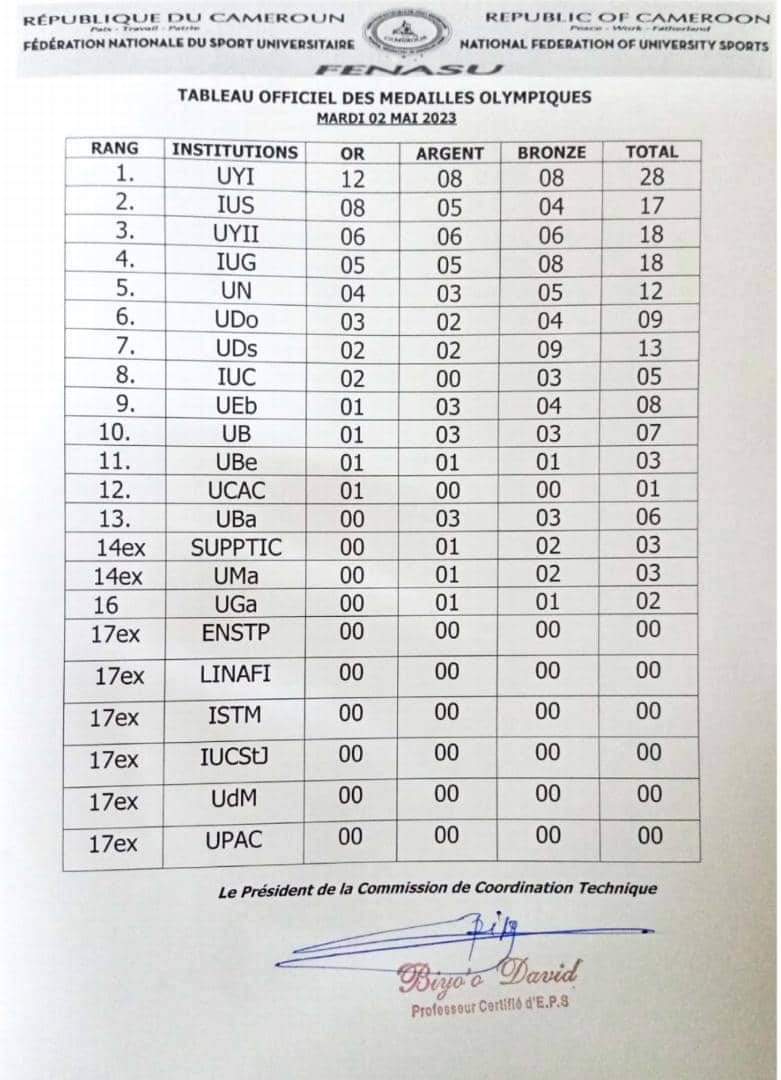 RÉPUBLIQUE DU CAMEROUN
Paix - Travail - Patrie
FÉDÉRATION NATIONALE DU SPORT UNIVERSITAIRE
REPUBLIC OF CAMEROON
Peace - Work - Fatherland
NATIONAL FEDERATION OF UNIVERSITY SPORTS
FENASU
TABLEAU OFFICIEL DES MEDAILLES OLYMPIQUES
MARDI 02 MAI 2023
RANG INSTITUTIONS OR ARGENT BRONZE TOTAL
1. UYI 12 08 08 28
2. IUS 08 05 04 17
3. UYII 06 06 06 18
4. IUG 05 05 08 18
5. UN 04 03 05 12
6. UDo 03 02 04 09
7. UDs 02 02 09 13
8. IUC 02 00 03 05
9. UEb 01 03 04 08
10. UB 01 03 03 07
11. UBe 01 01 01 03
12. UCAC 01 00 00 01
13. UBa 00 03 03 06
14ex SUPPTIC 00 01 02 03
14ex UMa 00 01 02 03
16 UGa 00 01 01 02
17ex ENSTP 00 00 00 00
17ex LINAFI 00 00 00 00
17ex ISTM 00 00 00 00
17ex IUCStJ 00 00 00 00
17ex UdM 00 00 00 00
17ex UPAC 00 00 00 00
Le Président de la Commission de Coordination Technique
Biyo'o David
Professeur Certifié d'E.P.S